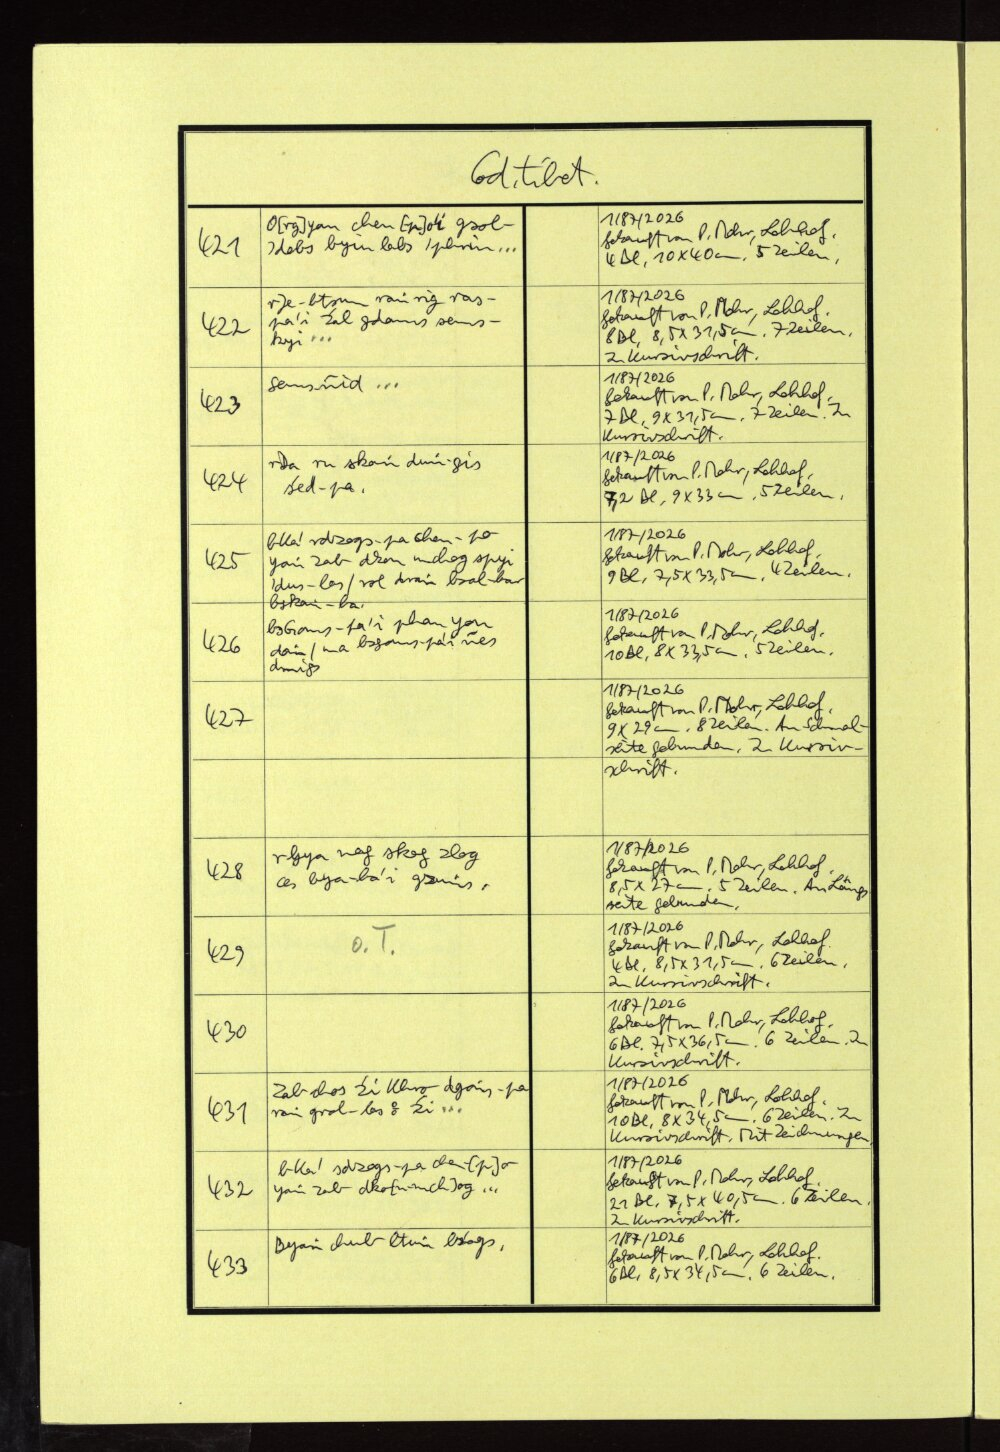 Cod. tibet.
421
O[rg]yan chen [p]o'i gsol-
'debs byin labs 'phrin ...
1/87/2026
Gekauft von P. Mohr, Lohhof.
4 Bl, 10 x 40 cm, 5 Zeilen,
422
rJe-btsun ran rig ras-
pa'i źal gdams sems-
kyi ...
1/87/2026
Gekauft von P. Mohr, Lohhof.
8 Bl, 8,5 x 31,5 cm. 7 Zeilen.
In Kursivschrift.
423
Sems-ñid ...
1/87/2026
Gekauft von P. Mohr, Lohhof.
7 Bl, 9 x 31,5 cm. 7 Zeilen. In
Kursivschrift.
424
rṄa ru
śed-pa.
1/87/2026
Gekauft von P. Mohr, Lohhof.
2 Bl, 9 x 33 cm. 5 Zeilen.
425
bKa' rdzogs-pa chen-po
yaṅ zab dkon mchog spyi
'dus-las / rol
bskaṅ-ba.
1/87/2026
Gekauft von P. Mohr, Lohhof.
9 Bl, 7,5 x 33,5 cm. 4 Zeilen.
426
bsGoms-pa'i phan yon
daṅ / ma bsgoms-pa'i ñes
dmigs
1/87/2026
Gekauft von P. Mohr, Lohhof.
10 Bl, 8 x 33,5 cm. 5 Zeilen.
427
1/87/2026
Gekauft von P. Mohr, Lohhof.
9 x 29 cm. 8 Zeilen. An Schmal-
seite gebunden. In Kursiv-
schrift.
428
rGya nag skag zlog
ces bya-ba'i gzuṅs.
1/87/2026
Gekauft von P. Mohr, Lohhof.
8,5 x 27 cm. 5 Zeilen. An Längs
seite gebunden.
429
o. T.
1/87/2026
Gekauft von P. Mohr, Lohhof.
4 Bl, 8,5 x 31,5 cm. 6 Zeilen.
In Kursivschrift.
430
1/87/2026
Gekauft von P. Mohr, Lohhof.
6 Bl. 7,5 x 36,5 cm. 6 Zeilen. In
Kursivschrift.
431
Zab chos źi khro dgoṅs-pa
raṅ grol-las § źi ...
1/87/2026
Gekauft von P. Mohr, Lohhof.
10 Bl, 8 x 34,5 cm. 6 Zeilen. In
Kursivschrift. Mit Zeichnungen.
432
bKa' rdzogs-pa chen-[p]o
yaṅ zab dko[n-mch]og ...
1/87/2026
Gekauft von P. Mohr, Lohhof.
21 Bl. 7,5 x 40,5 cm. 6 Zeilen.
In Kursivschrift.
433
Byaṅ
1/87/2026
Gekauft von P. Mohr, Lohhof.
6 Bl, 8,5 x 34,5 cm. 6 Zeilen.